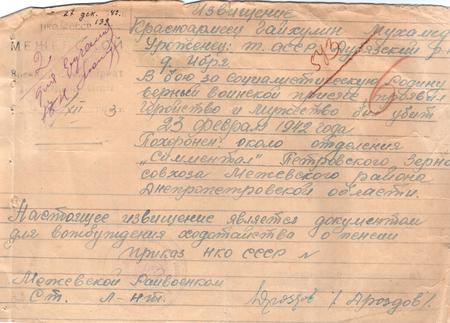 Извищение
27 дек. 42.
НКО СССР
Красноармеец Байкулин Мухамед
Уроженец: т. АССР
д. Чбря
583
В бою за социалистическую родину
верный воинской присяге проявил
геройство и мужество был убит
23 феврал 1942 года
Похоронен: около отделения
„Симментал" Петровского Зерно
совхоза Межевского района
Днепропетровской области.
Настоящее извищение является документом
для возбуждения ходотайства о пенсии
приказ НКО СССР N
Межевской Райвоенком
Ст. Л-нт.
/ Дроздов /